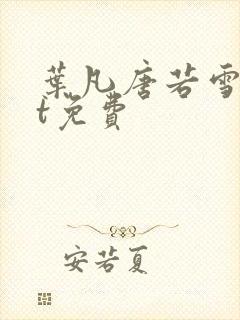 葉凡唐若雪
t免費
安若夏